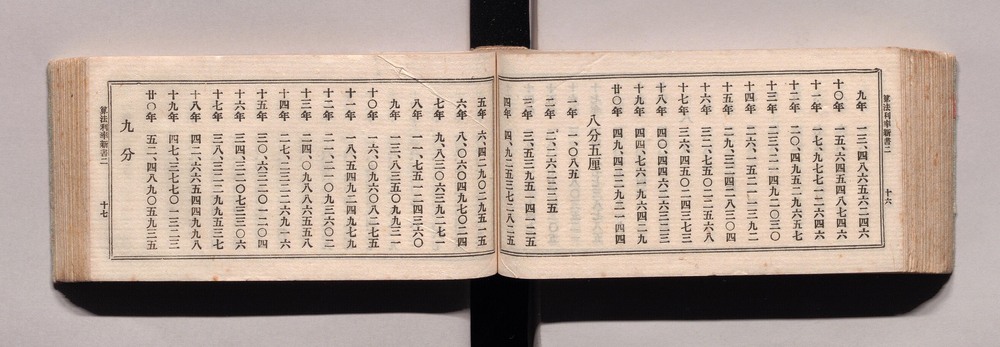 算法利率新書二
十六
九年 一三、四八六五六二四六
十〇年 一五、六四五四八七四六
十一年 一七、九七七一二六四六
十二年 二〇、四九五二九六五七
十三年 二三、二一四九二〇三〇
十四年 二六、一五二一一三九二
十五年 二九、三二四二八三〇四
十六年 三二、七五〇二二五六八
十七年 三六、四五〇二四三七三
十八年 四〇、四四六二六三二三
十九年 四四、七六一九六四二九
廿〇年 四九、四二二九二一四四
八分五厘
一年 一、〇八五
二年 二、二六二二二五
三年 三、五三九五一四一二五
四年 四、九二五三七二八二五
五年 六、四二九〇二九五一五
六年 八、〇六〇四九七〇二四
七年 九、八三〇六三九二七一
八年 一一、七五一二四三六〇
九年 一三、八三五〇九九三一
十〇年 一六、〇九六〇八二七五
十一年 一八、五四九二四九七九
十二年 二一、二一〇九三六〇二
十三年 二四、〇九八八六五五八
十四年 二七、二三二二六九一六
十五年 三〇、六三二〇一二〇四
十六年 三四、三二〇七三三〇六
十七年 三八、三二二九九五三七
十八年 四二、六六五四四九九八
十九年 四七、三七七〇一三二三
廿〇年 五二、四八九〇五九三五
九分
算法利率新書二
十七